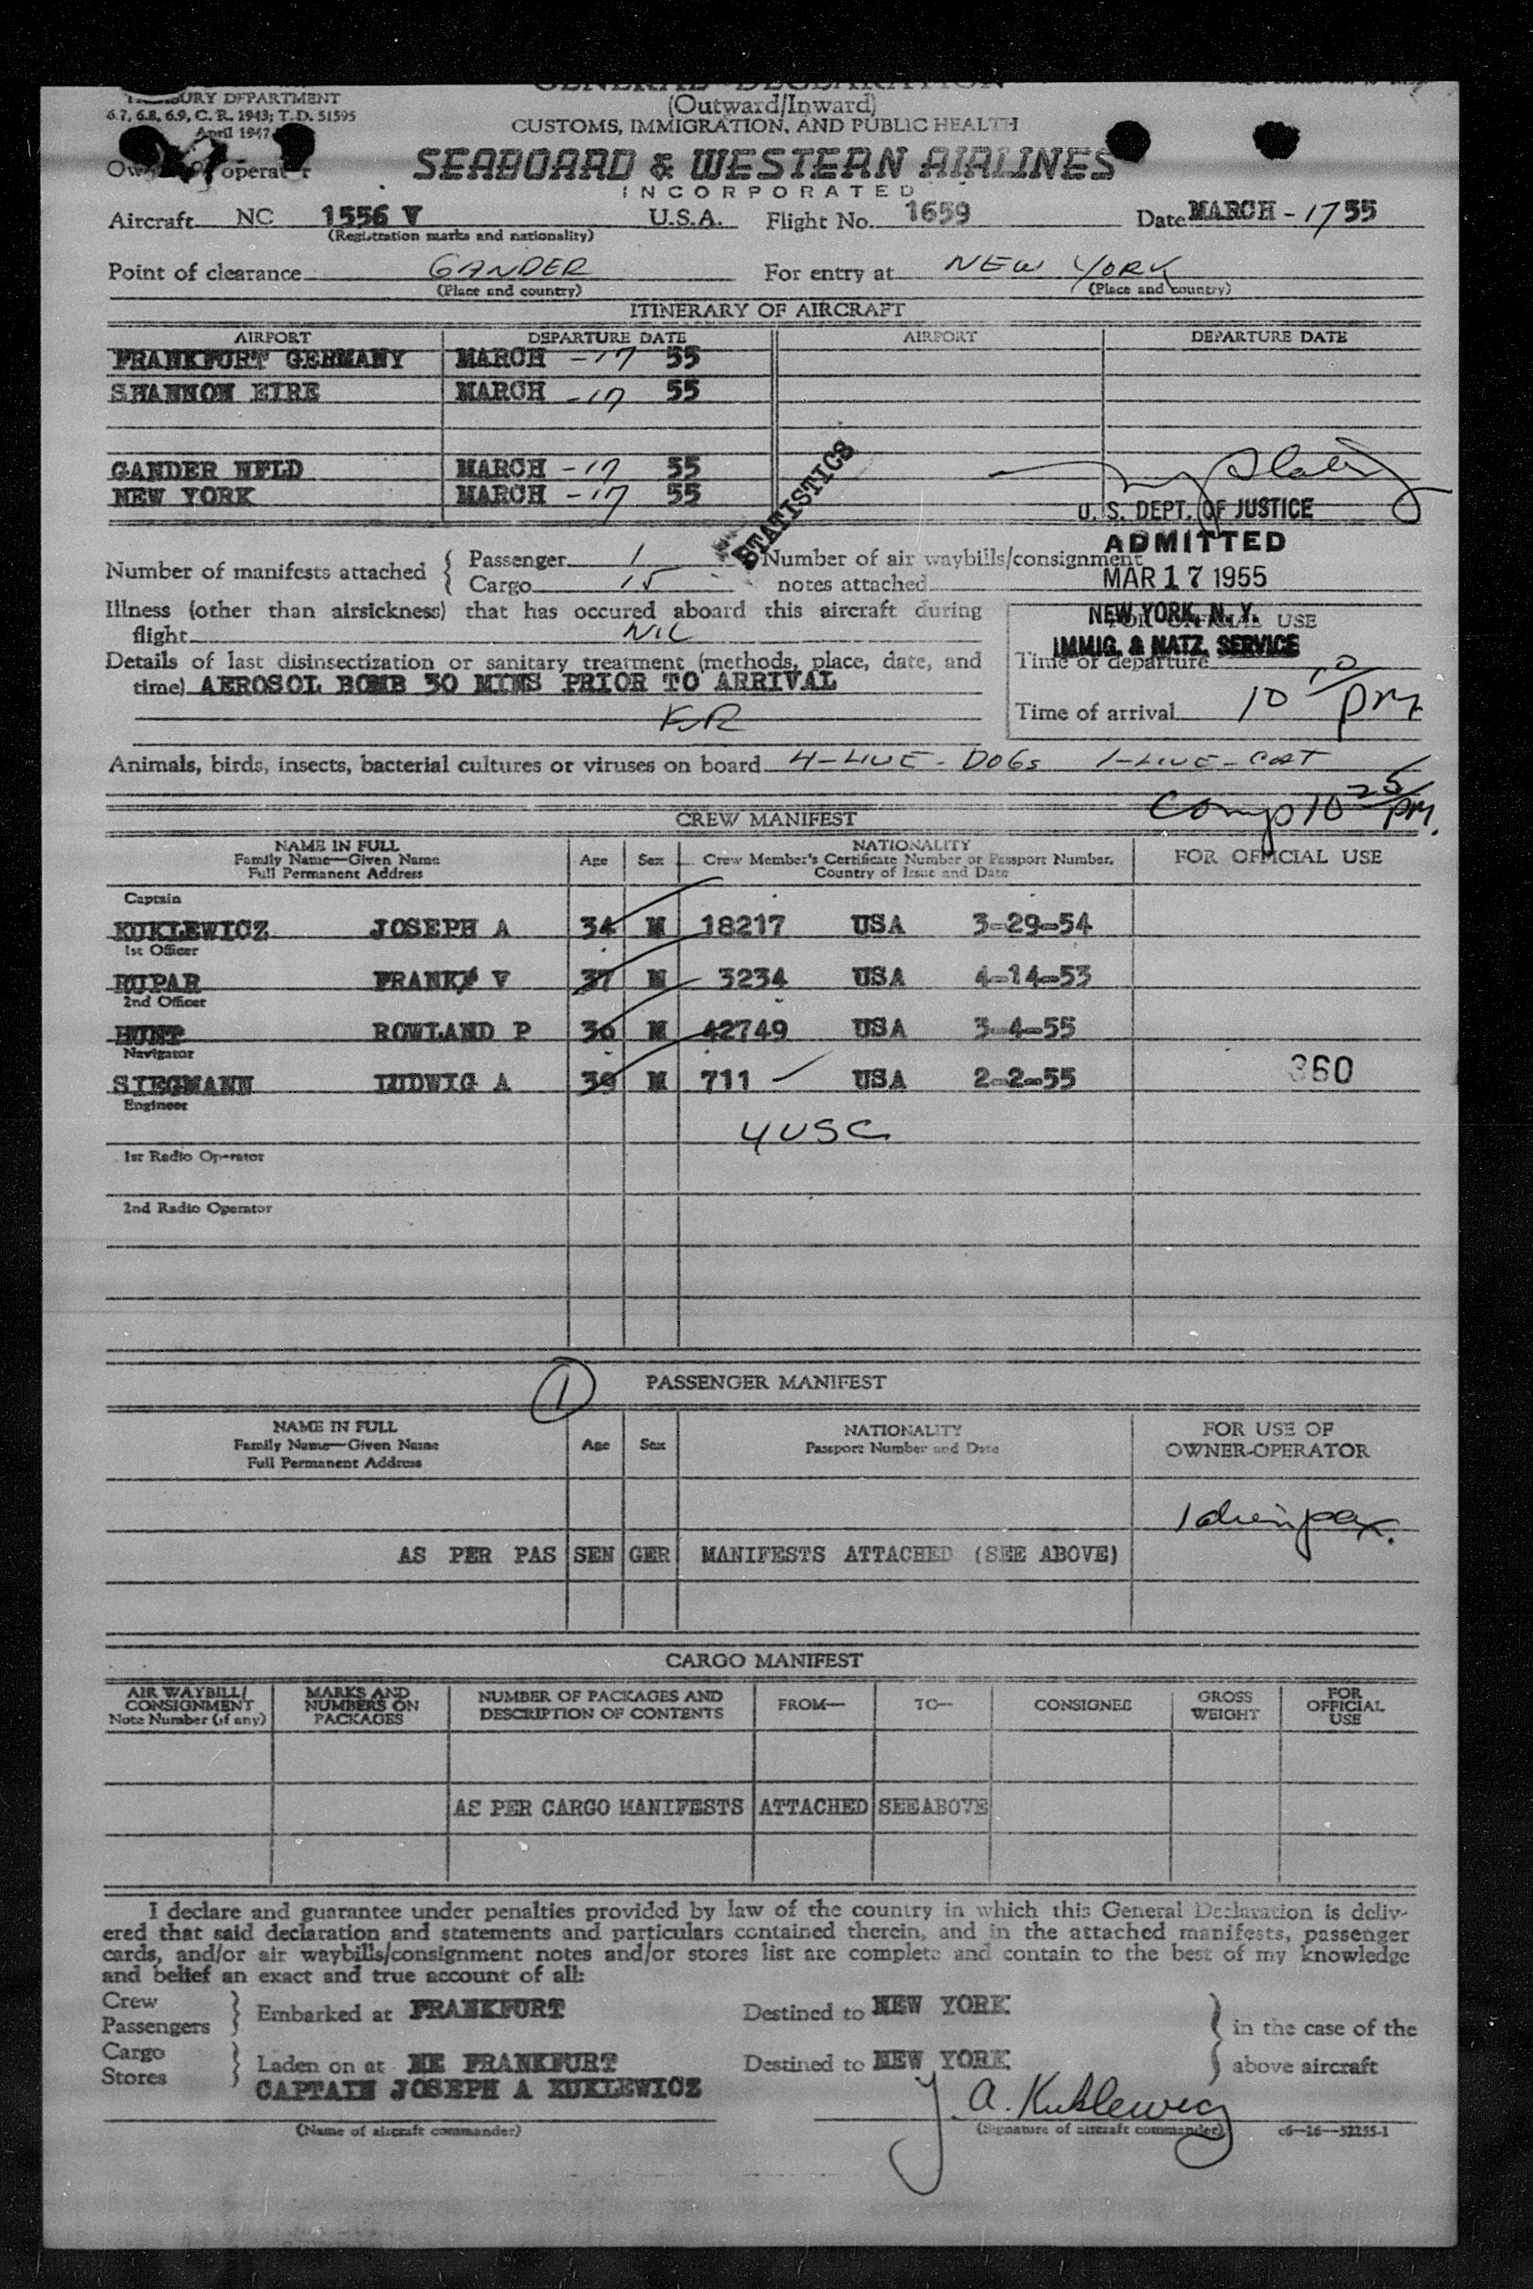 GENERAL DECLARATION
TREASURY DEPARTMENT
6.7, 6.8, 6.9, C. R. 1943; T. D. 51595
April 1947
(Outward/Inward)
CUSTOMS, IMMIGRATION, AND PUBLIC HEALTH
operator SEABOARD & WESTERN AIRLINES
INCORPORATED
Aircraft NC 1556 V U.S.A. Flight No. 1659 Date MARCH - 17 55
(Registration marks and nationality)
Point of clearance GANDER For entry at NEW YORK
(Place and country) (Place and country)
ITINERARY OF AIRCRAFT
AIRPORT DEPARTURE DATE AIRPORT DEPARTURE DATE
FRANKFURT GERMANY MARCH - 17 55
SHANNON EIRE MARCH - 17 55
GANDER NFLD MARCH - 17 55
NEW YORK MARCH - 17 55
STATISTICS
U. S. DEPT. OF JUSTICE
ADMITTED
MAR 17 1955
NEW YORK, N. Y.
IMMIG. & NATZ. SERVICE
Number of manifests attached { Passenger 1 Number of air waybills/consignment
{ Cargo 15 notes attached
Illness (other than airsickness) that has occured aboard this aircraft during
flight NIL
FOR OFFICIAL USE
Details of last disinsectization or sanitary treatment (methods, place, date, and
time) AEROSOL BOMB 30 MINS PRIOR TO ARRIVAL
Time of departure
Time of arrival 10 10/PM
Animals, birds, insects, bacterial cultures or viruses on board 4-LIVE-DOGS 1-LIVE-CAT
Comp 10 25/PM.
CREW MANIFEST
NAME IN FULL
Family Name—Given Name
Full Permanent Address
Age Sex
NATIONALITY
Crew Member's Certificate Number or Passport Number,
Country of Issue and Date
FOR OFFICIAL USE
Captain
KUKLEWICZ JOSEPH A 34 M 18217 USA 3-29-54
1st Officer
RUPAR FRANK V 37 M 3234 USA 4-14-53
2nd Officer
HUNT ROWLAND P 30 M 42749 USA 3-4-55
Navigator
SIEGMANN LUDWIG A 39 M 711 USA 2-2-55 360
Engineer
4 USC
1st Radio Operator
2nd Radio Operator
1 PASSENGER MANIFEST
NAME IN FULL
Family Name—Given Name
Full Permanent Address
Age Sex
NATIONALITY
Passport Number and Date
FOR USE OF
OWNER-OPERATOR
AS PER PAS SEN GER MANIFESTS ATTACHED (SEE ABOVE)
CARGO MANIFEST
AIR WAYBILL/
CONSIGNMENT
Note Number (if any)
MARKS AND
NUMBERS ON
PACKAGES
NUMBER OF PACKAGES AND
DESCRIPTION OF CONTENTS
FROM— TO— CONSIGNEE
GROSS
WEIGHT
FOR
OFFICIAL
USE
AS PER CARGO MANIFESTS ATTACHED SEE ABOVE
I declare and guarantee under penalties provided by law of the country in which this General Declaration is deliv-
ered that said declaration and statements and particulars contained therein, and in the attached manifests, passenger
cards, and/or air waybills/consignment notes and/or stores list are complete and contain to the best of my knowledge
and belief an exact and true account of all:
Crew
Passengers } Embarked at FRANKFURT Destined to NEW YORK } in the case of the
Cargo
Stores } Laden on at FRANKFURT Destined to NEW YORK } above aircraft
CAPTAIN JOSEPH A KUKLEWICZ J. A. Kuklewicz
(Name of aircraft commander) (Signature of aircraft commander) c6—16—52255-1